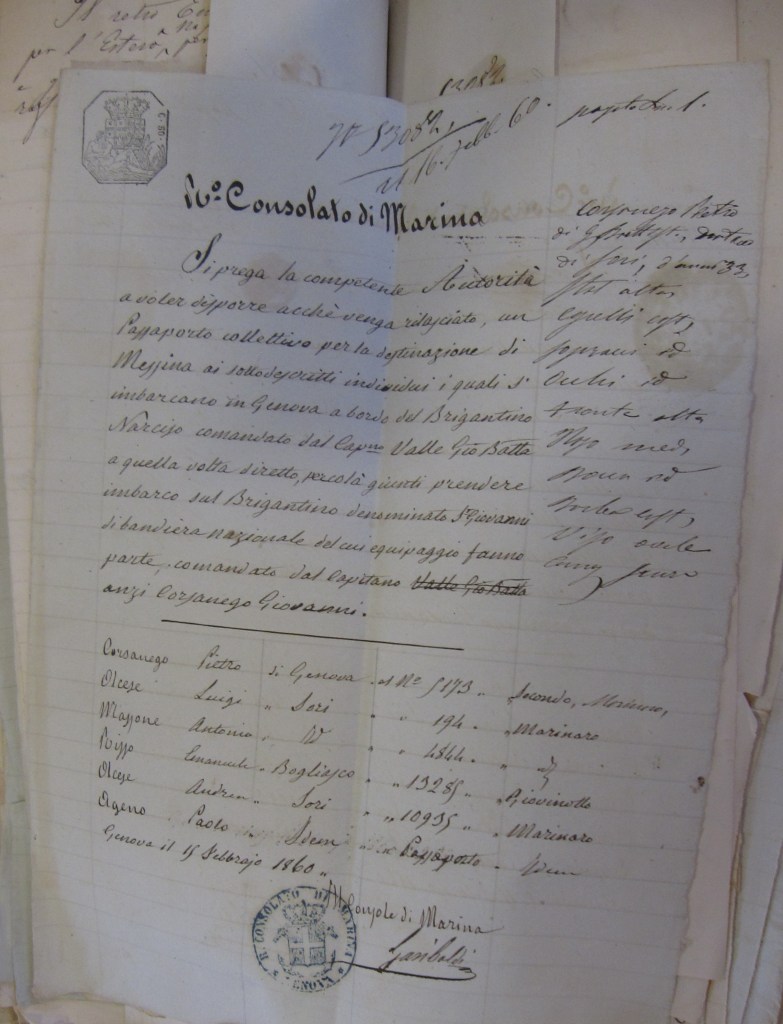 Il retro
per l'Estero
5308½
N° 5308½,
il 16. Febb. 60.
pagato Ln. 1.
C. 50.
R.° Consolato di Marina
Si prega la competente Autorità
a voler disporre acchè venga rilasciato, un
Passaporto collettivo per la destinazione di
Messina ai sottodescritti individui i quali s'
imbarcano in Genova a bordo del Brigantino
Narciso comandato dal Cap.no Valle Gio Batta
a quella volta diretto, percolà giunti prendere
imbarco sul Brigantino denominato S. Giovanni
di bandiera nazionale del cui equipaggio fanno
parte, comandato dal Capitano Valle Gio Batta
anzi Corsanego Giovanni.
Corsanego Pietro
di G Batta,
di Sori, d'anni 33,
Stat. alta,
Capelli cast,
Sopraci id
Occhi id
Fronte alta
Naso med,
Bocca id
Barba cast,
Viso ovale
Corsanego Pietro di Genova al N° 5173 " Secondo,
Olcese Luigi " Sori " " 194 " Marinaro
Massone Antonio " Id " " 4844 " "
Risso Emanuele " Bogliasco " " 13285 " Giovinotto
Olcese Andrea " Sori " " 10935 " Marinaro
Ageno Paolo " Idem " Passaporto " Idem
Genova il 15 Febbrajo 1860 "
Il Console di Marina
Garibaldi
R. CONSOLATO DI MARINA
GENOVA